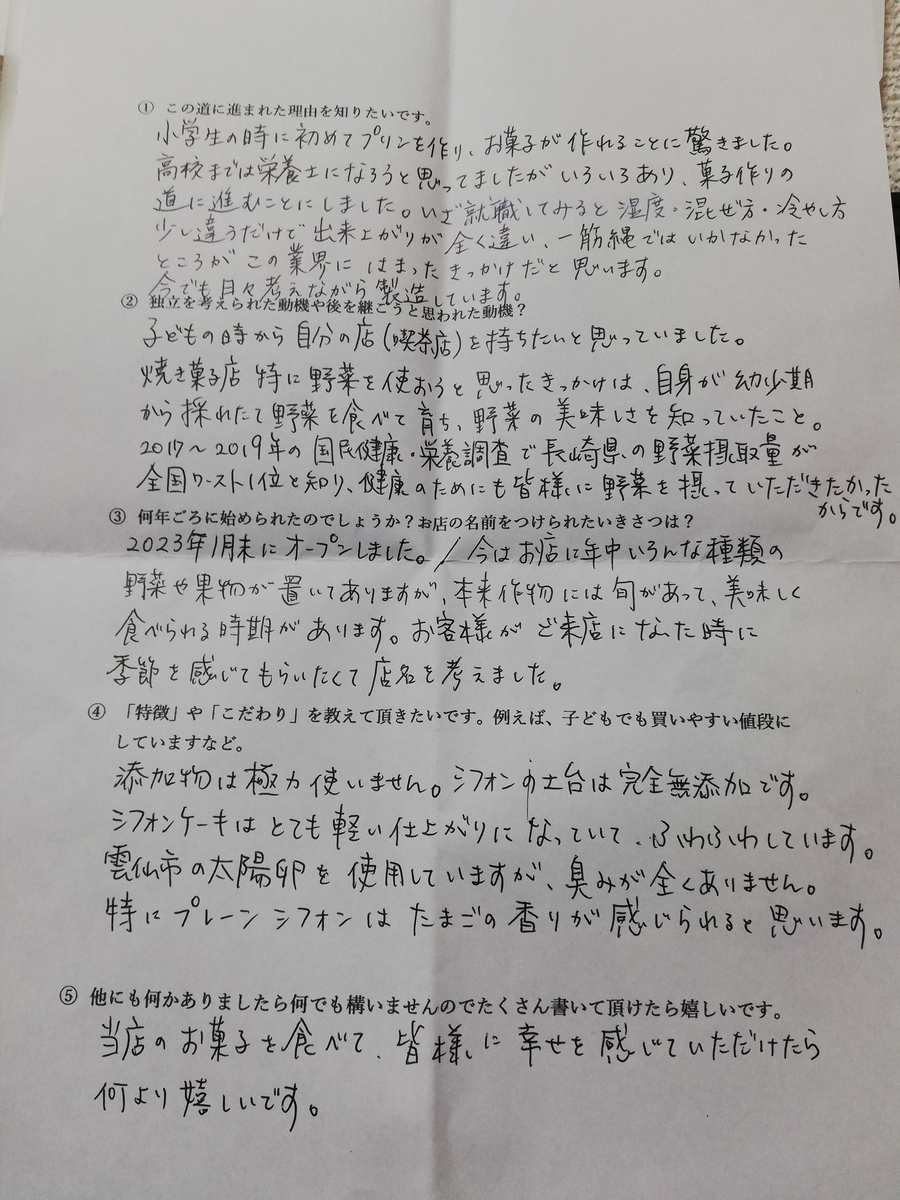 ① この道に進まれた理由を知りたいです。
小学生の時に初めてプリンを作り、お菓子が作れることに驚きました。
高校までは栄養士になろうと思ってましたがいろいろあり、菓子作りの
道に進むことにしました。いざ就職してみると湿度・混ぜ方・冷やし方
少し違うだけで出来上がりが全く違い、一筋縄ではいかなかった
ところがこの業界にはまったきっかけだと思います。
今でも日々考えながら製造しています。
② 独立を考えられた動機や後を継ごうと思われた動機？
子どもの時から自分の店(喫茶店)を持ちたいと思っていました。
焼き菓子店 特に野菜を使おうと思ったきっかけは、自身が幼少期
から採れたて野菜を食べて育ち、野菜の美味しさを知っていたこと。
2017〜2019年の国民健康・栄養調査で長崎県の野菜摂取量が
全国ワースト1位と知り、健康のためにも皆様に野菜を摂っていただきたかった
からです。
③ 何年ごろに始められたのでしょうか？お店の名前をつけられたいきさつは？
2023年1月末にオープンしました。/今はお店に年中いろんな種類の
野菜や果物が置いてありますが、本来作物には旬があって、美味しく
食べられる時期があります。お客様がご来店になった時に
季節を感じてもらいたくて店名を考えました。
④ 「特徴」や「こだわり」を教えて頂きたいです。例えば、子どもでも買いやすい値段に
していますなど。
添加物は極力使いません。シフォンの土台は完全無添加です。
シフォンケーキはとても軽い仕上がりになっていて、ふわふわしています。
雲仙市の太陽卵を使用していますが、臭みが全くありません。
特にプレーンシフォンはたまごの香りが感じられると思います。
⑤ 他にも何かありましたら何でも構いませんのでたくさん書いて頂けたら嬉しいです。
当店のお菓子を食べて、皆様に幸せを感じていただけたら
何より嬉しいです。